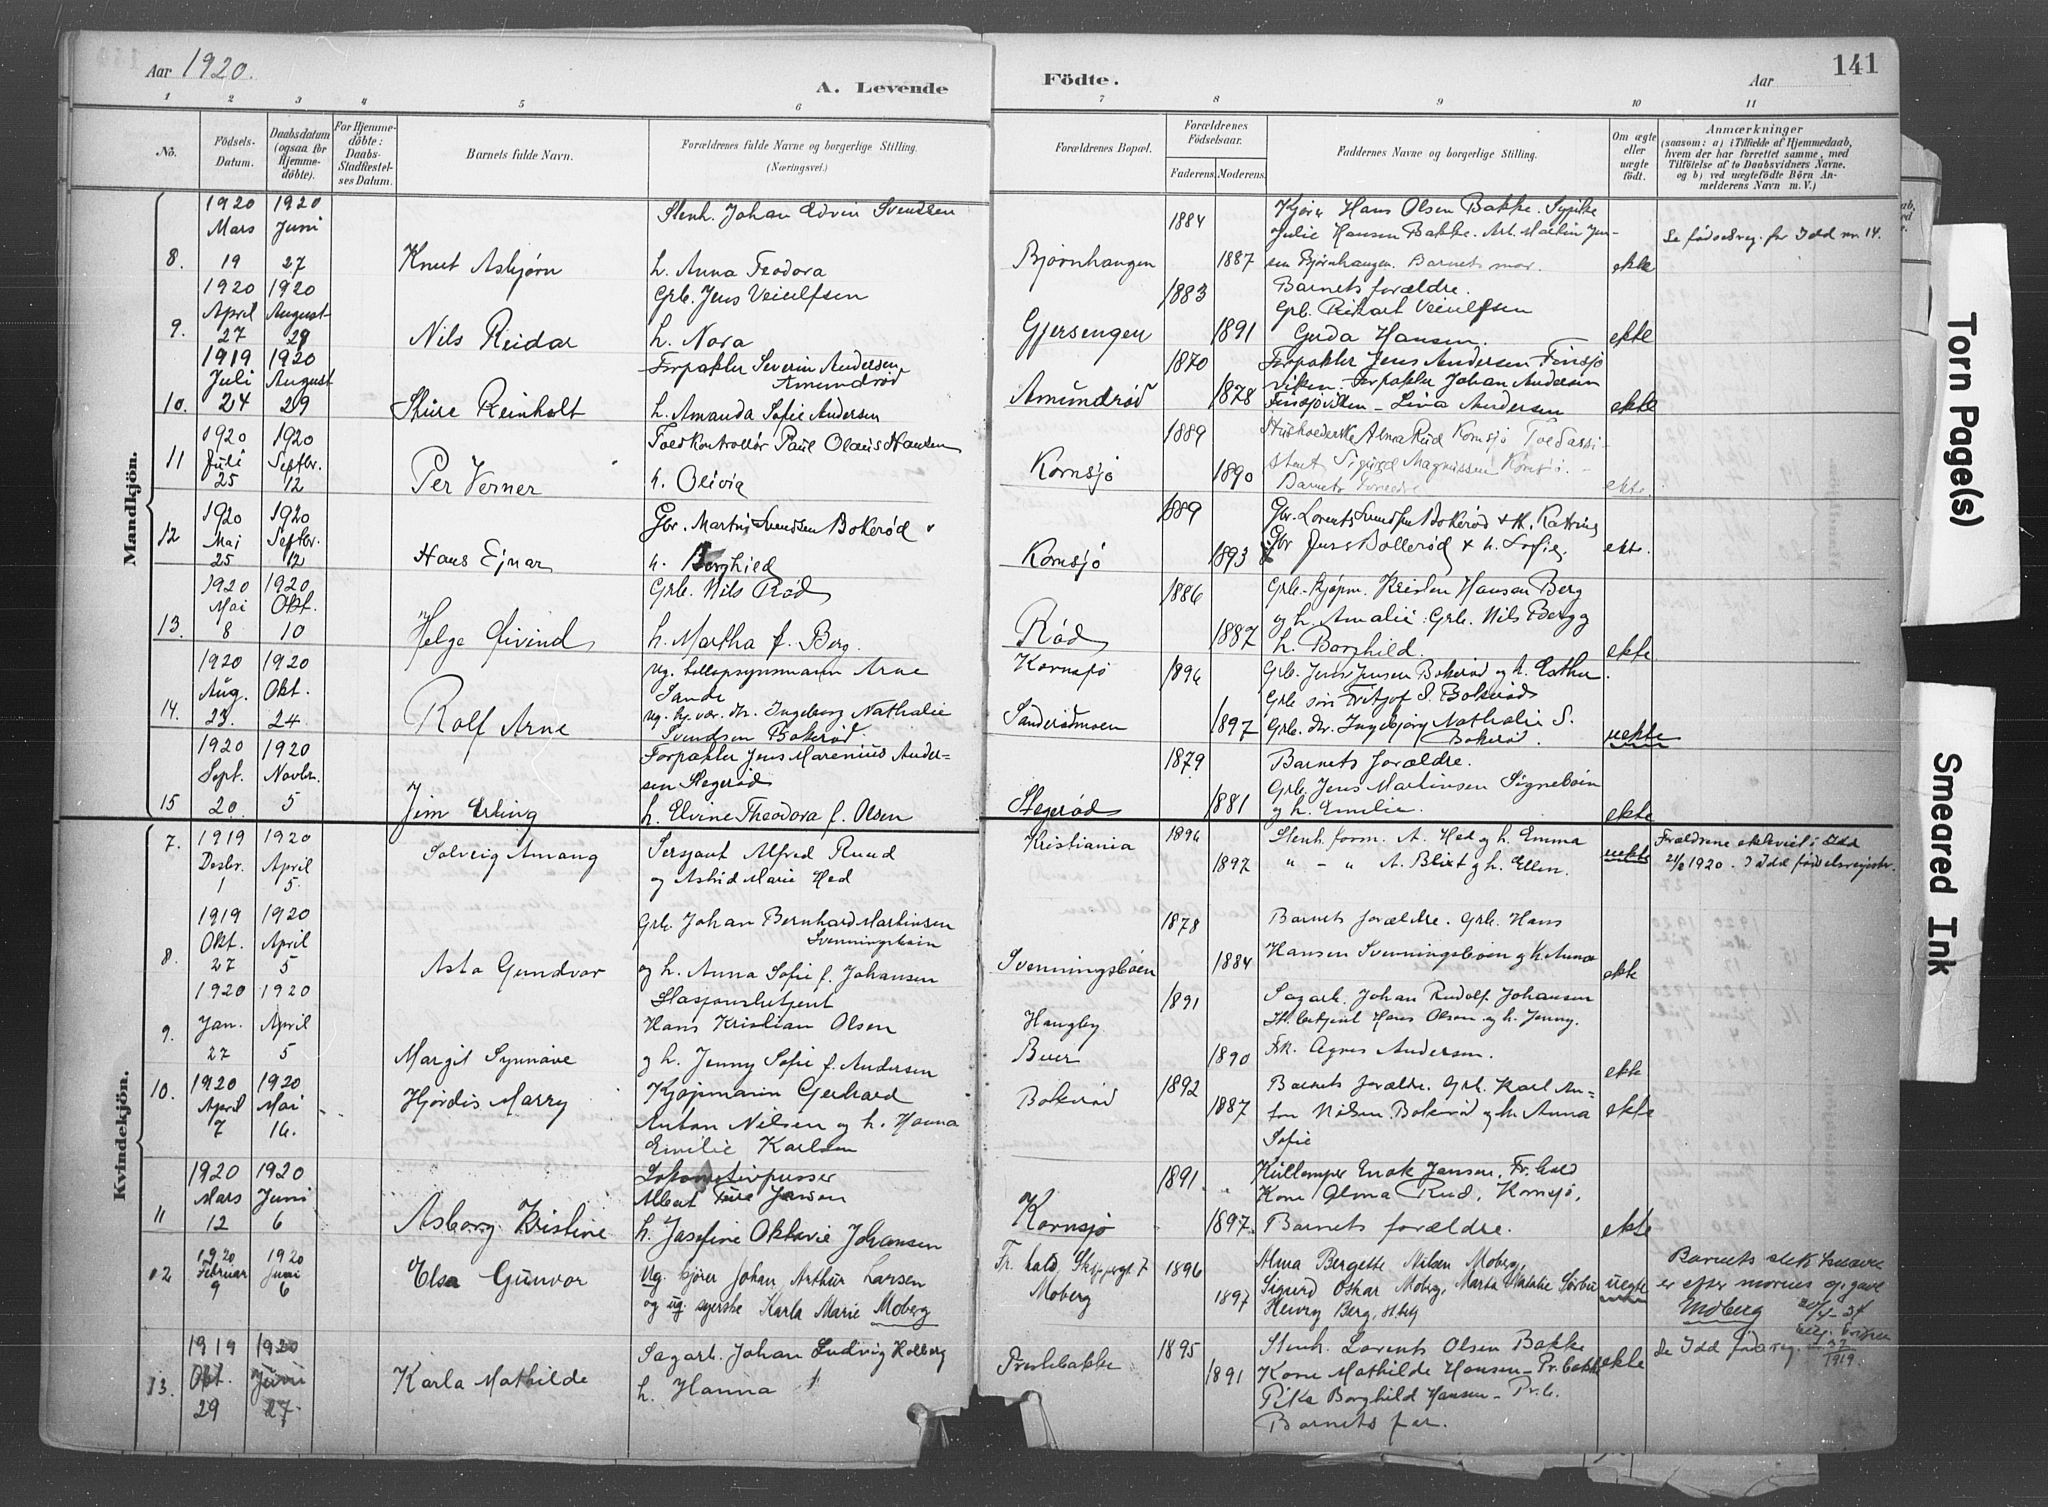 Aar 1920.
A. Levende Födte.
Aar
141
1 2 3 4 5 6 7 8 9 10 11
No.
Födsels-Datum.
Daabsdatum (ogsaa for Hjemmedöbte).
For Hjemmedöbte: Daabs-Stadfæstelses Datum.
Barnets fulde Navn.
Forældrenes fulde Navne og borgerlige Stilling.
(Næringsvei.)
Forældrenes Bopæl.
Forældrenes Födselsaar.
Faderens. Moderens.
Faddernes Navne og borgerlige Stilling.
Om ægte eller uægte födt.
Anmærkninger
(saasom: a) i Tilfælde af Hjemmedaab, hvem der har forrettet samme, med Tilföielse af to Daabsvidners Navne. og b) ved uægtefödte Börn Anmelderens Navn m. V.)
Mandkjön.
8. 1920 Mars 19
1920 Juni 27
Knut Asbjørn
Stenh. Johan Edvin Svendsen
h. Anna Teodora
Bjørnhaugen
1884
1887
Kjører Hans Olsen Bakke. Sypike
Julie Hansen Bakke. Arb. Martin Jensen
Bjørnhaugen. Barnets mor.
ekte
Se fødselsreg. for Idd nr. 14.
9. 1920 April 27
1920 August 29
Nils Reidar
Grb. Jens Veiulfsen
h. Nora
Gjersengen
1883
1891
Barnets forældre.
Grb. Rikart Veiulfsen
Gerda Hansen.
ekte
10. 1919 Juli 24
1920 August 29
Sture Reinholt
Forpakter Severin Andersen
Amundrød
h. Amanda Sofie Andersen
Amundrød
1870
1878
Forpakter Jens Andersen Finsjø
viken. Forpakter Johan Andersen
Finsjøviken - Lina Andersen
ekte
11 1920 Juli 25
1920 Septbr. 12
Per Verner
Toldkontrollør Paul Olaus Hansen
h. Olivia
Kornsjø
1889
1890
Alma Rud Kornsjø Toldassi-
stent Sigurd Magnussen Kornsjø. -
Barnets Foreldre
ekte.
12 1920 Mai 25
1920 Septbr. 12
Hans Ejnar
Gbr. Martin Svendsen Bokerød +
h. Borghild
Kornsjø
1889
1893
Gbr. Lorents Svendsen Bokerød + h. Katrine
Gbr Jens Bollerød + h. Sofie,
ekte.
13. 1920 Mai 8
1920 Okt. 10
Helge Eivind
Grb. Nils Rød
h. Martha f. Berg.
Rød
1886
1887
Grb. Kjøpm. Kristen Hansen Berg
og h. Amalie. Grb. Nils Berg og
h. Borghild.
ekte
14. 1920 Aug. 23.
1920 Okt. 24
Rolf Arne
ug. tillopsynsmann Arne
Sande
ug. hv. dtr. Ingeborg Nathalie
Svendsen Bokerød
Kornsjø
Sanderødmoen
1896
1897
Grb. Jens Jensen Bokerød og h. Esther
Grb. søn Fritjof S. Bokerød
Grb. dtr. Ingebjørg Nathalie S.
Bokerød.
uekte
15 1920 Sept. 20.
1920 Novbr. 5
Jim Erling
Forpakter Jens Marenius Ander-
sen Stegerød
h. Elvine Theodora f. Olsen
Stegerød
1879
1881
Barnets forældre.
Grb. Jens Martinsen Signebøen
og h. Emilie.
ekte
Kvindekjön.
7. 1919 Desbr. 1
1920 April 5.
Solveig Amang
Sersjant Alfred Ruud
og Astrid Marie Hed
Kristiania
1896
1897
Stenh. form. A. Hed og h. Emma
" - " A. Blixt og h. Ellen.
uekte
Forældrene ekteviet i Idd
1920. I Idd fødselsregister.
8. 1919 Okt. 27
1920 April 5
Asta Gundvor
Grb. Johan Bernhard Martinsen
Svenningsbøen
og h. Anna Sofie f. Johansen
Svenningsbøen
1878
1884
Barnets forældre. Grb. Hans
Hansen Svenningsbøen og h. Anna
ekte
9. 1920 Jan. 27
1920 April 5
Margit Synnøve
Stasjonsbetjent
Hans Kristian Olsen
og h. Jenny Sofie f. Andersen
Haugby
Buer
1891
1890
Sagarb. Johan Rudolf Johansen
St. betjent Hans Olsen og h. Jenny.
Frk. Agnes Andersen.
ekte
10. 1920 April 7
1920 Mai 16.
Hjørdis Marry
Kjøpmann Gerhard
Anton Nilsen og h. Hanna
Emilie Karlsen
Bokerød
1892
1887
Barnets forældre. Grb. Karl An-
ton Nilsen Bokerød og h. Anna
Sofie
ekte
11 1920 Mars 12
1920 Juni 6
Asborg Kristine
Lokomotivpusser
Albert Ture Jansen
h. Josefine Oktavie Johansen
Kornsjø
1891
1897
Kullemper Enok Jansen, Fr.hald
Kone Alma Rud, Kornsjø,
Barnets forældre.
ekte
12 1920 Februar 9
1920 Juni 6
Elsa Gunvor
Ug. kjører Johan Arthur Larsen
og ug. syerske Karla Marie Moberg
Fr. hald, Skippergt 7
Moberg
1896
1897
Alma Bergette Nilsen Moberg,
Sigurd Oskar Moberg, Marta Natalie Sørbu
Henry Berg,
uegte
Barnets slektsnavn
er efter morens opgave
Moberg
13. 1919 Okt. 29
1920 Juni 27
Karla Mathilde
Sagarb. Johan Ludvig Holberg
h. Hanna
Prestebakke
1895
1891
Stenh. Lorents Olsen Bakke
Kone Mathilde Hansen - Pr. bakke
Pike Borghild Hansen - Pr.b.
Barnets far.
ekte
Se Iddføds.reg. 1919.
Torn Page(s)
Smeared Ink